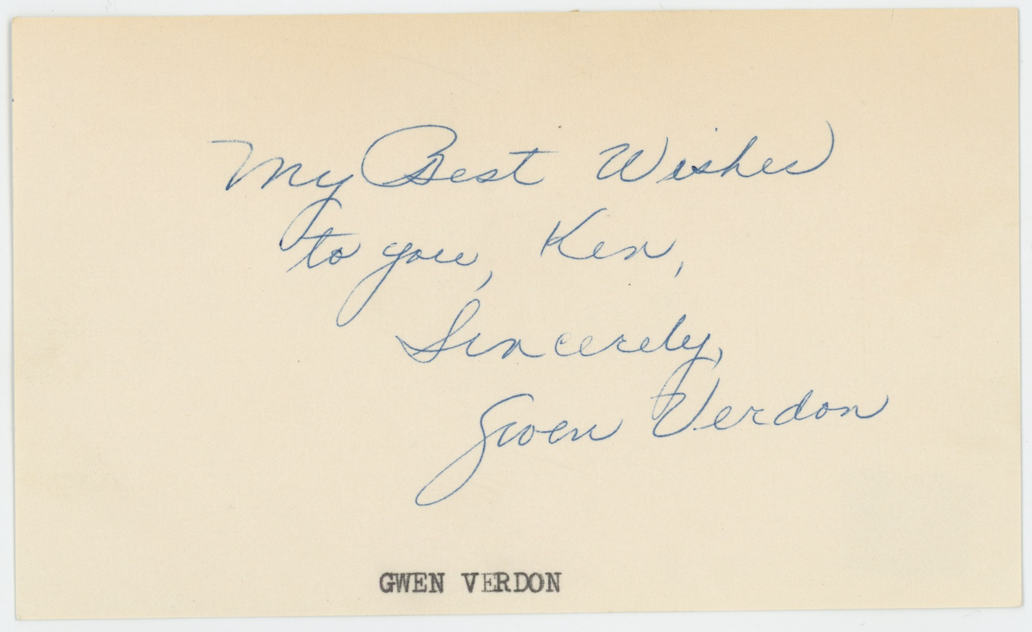 My Best Wishes
to you, Ken,
Sincerely,
Gwen Verdon
GWEN VERDON